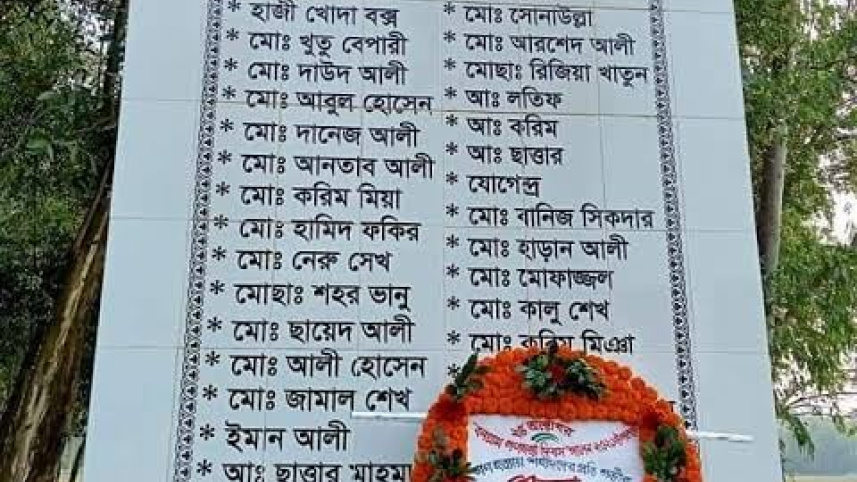 * হাজী খোদা বক্স
* মোঃ খুতু বেপারী
* মোঃ দাউদ আলী
* মোঃ আবুল হোসেন
* মোঃ দানেজ আলী
* মোঃ আনতাব আলী
* মোঃ করিম মিয়া
* মোঃ হামিদ ফকির
* মোঃ নেরু সেখ
* মোছাঃ শহর ভানু
* মোঃ ছায়েদ আলী
* মোঃ আলী হোসেন
* মোঃ জামাল শেখ
* ইমান আলী
* আঃ ছাত্তার
* মোঃ সোনাউল্লা
* মোঃ আরশেদ আলী
* মোছাঃ রিজিয়া খাতুন
* আঃ লতিফ
* আঃ করিম
* আঃ ছাত্তার
* যোগেন্দ্র
* মোঃ বানিজ সিকদার
* মোঃ হাড়ান আলী
* মোঃ মোফাজ্জল
* মোঃ কালু শেখ
* মোঃ করিম মিঞা
*
২৫ অক্টোবর
গণহত্যা দিবস
শহীদদের প্রতি